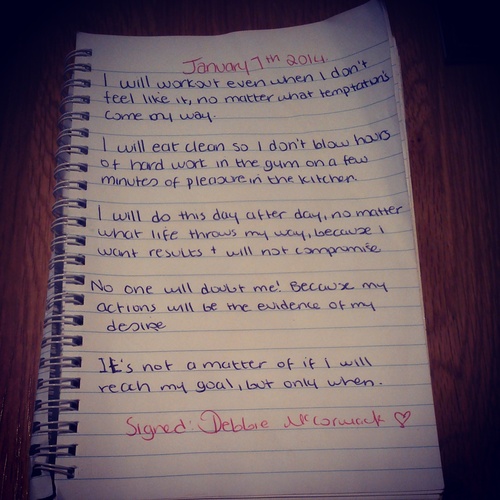 January 7th 2014.
I will workout even when I don't
feel like it, no matter what temptations
come my way.
I will eat clean so I don't blow hours
of hard work in the gym on a few
minutes of pleasure in the kitchen.
I will do this day after day, no matter
what life throws my way, because I
want results + will not compromise
No one will doubt me! Because my
actions will be the evidence of my
desire
It's not a matter of if I will
reach my goal, but only when.
Signed: Debbie McCormack ♡